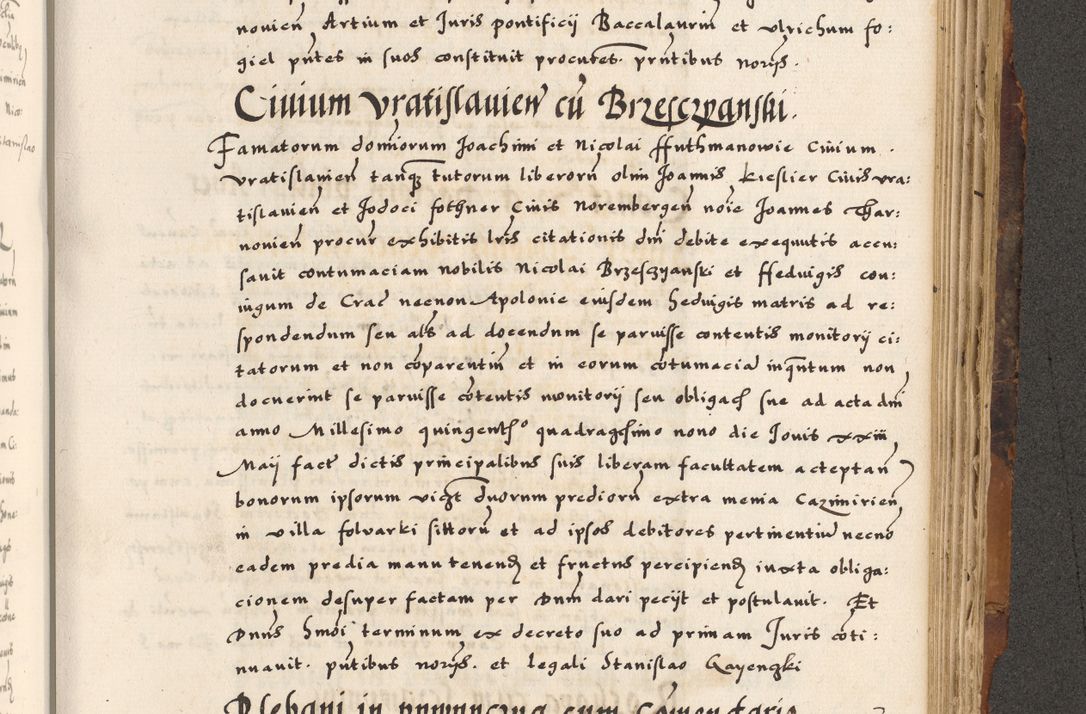 novien Artium et Juris pontificij Baccalaurin et vlrichum fo:
giel pntes in suos constituit procutes. pntibus norijs.
Ciuium Vratislauien cu Brzesczyanski.
Famatorum dominorum Joachimi et Nicolai ffuthmanowie Ciuium
vratislauien tanq tutorum liberoru olim Joannis Kieslier Ciuis vra:
tislauien et Jodoci fothner Ciuis Norembergen noie Joannes Thar:
novien procur exhibitis lris citationis dni debite exequutis accu:
sauit contumaciam nobilis Nicolai Brzesczyanski et ffedwigis con:
iugum de Crac necnon Apolonie eiusdem hedwigis matris ad re:
spondendum seu als ad docendum se paruisse contentis monitorij ci:
tatorum et non coparentiu et in eorum cotumacia inqntum non
docuerint se paruisse cotentis monitorij seu obligac sue ad acta dni
anno Millesimo quingentso quadragesimo nono die Jouis xxiii
Maij fact dictis principalibus suis liberam facultatem acceptan
bonorum ipsorum vigt duorum predioru extra menia Cazmirien
in villa folvarki sittoru et ad ipsos debitores pertinentiu necno
eadem predia manutenend et fructus percipiend iuxta obliga:
cionem desuper factam per Dnm dari pecijt et postulauit. Et
Dnus hmoi terminum ex decreto suo ad primam Juris coti:
nuauit. pntibus norijs. et legali Stanislao Gayengki
Plebani in cum Comendario